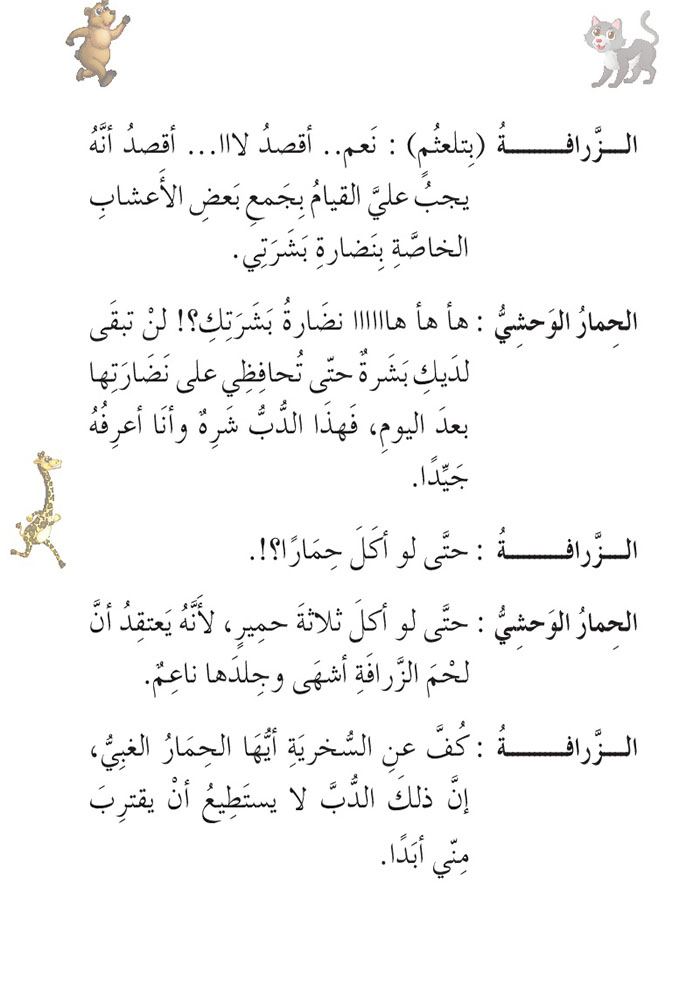 الـزَّرافـةُ (بِتلعثُمٍ) : نَعم.. أقصدُ لااا... أقصدُ أنَّهُ
يجبُ عليَّ القيامُ بِجَمعِ بَعضِ الأَعشابِ
الخاصَّةِ بِنَضارةِ بَشَرَتِي.
الحِمارُ الوَحشِيُّ : هأ هأ هااااا نضَارةُ بَشَرَتِكِ؟! لنْ تبقَى
لدَيكِ بَشَرةٌ حتّى تُحافِظِي على نَضَارَتِها
بعدَ اليومِ، فَهذَا الدُّبُّ شَرِهٌ وأنَا أعرِفُهُ
جَيِّدًا.
الـزَّرافـةُ : حتَّى لو أكَلَ حِمَارًا؟!.
الحِمارُ الوَحشِيُّ : حتَّى لو أكلَ ثلاثةَ حمِيرٍ، لأَنَّهُ يَعتقِدُ أنَّ
لحْمَ الزَّرافَةِ أشهَى وجِلدَها ناعِمٌ.
الـزَّرافـةُ : كُفَّ عنِ السُّخريَةِ أيُّهَا الحِمَارُ الغبِيُّ،
إنَّ ذلكَ الدُّبَّ لا يستَطِيعُ أنْ يقترِبَ
مِنّي أبَدًا.